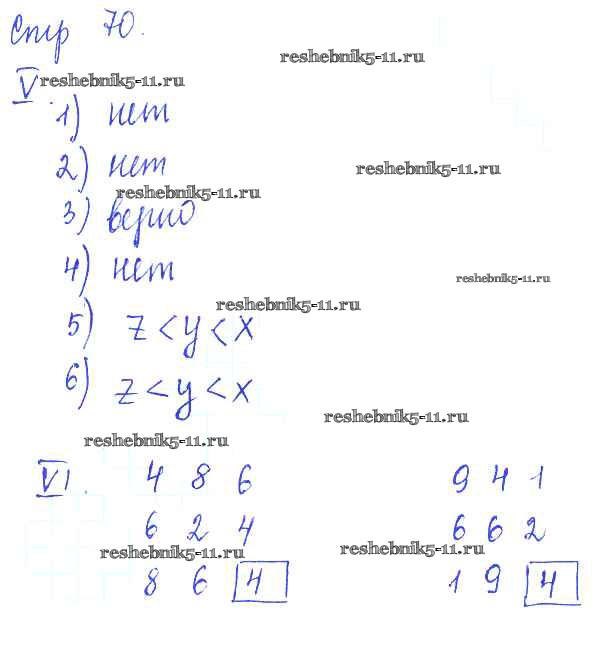 Стр 70.
reshebnik5-11.ru
V reshebnik5-11.ru
1) нет
2) нет
reshebnik5-11.ru
reshebnik5-11.ru
3) верно
4) нет
reshebnik5-11.ru
reshebnik5-11.ru
5) z < y < x
6) z < y < x
reshebnik5-11.ru
reshebnik5-11.ru
VI. 4 8 6 9 4 1
6 2 4 6 6 2
reshebnik5-11.ru reshebnik5-11.ru
8 6 4 1 9 4